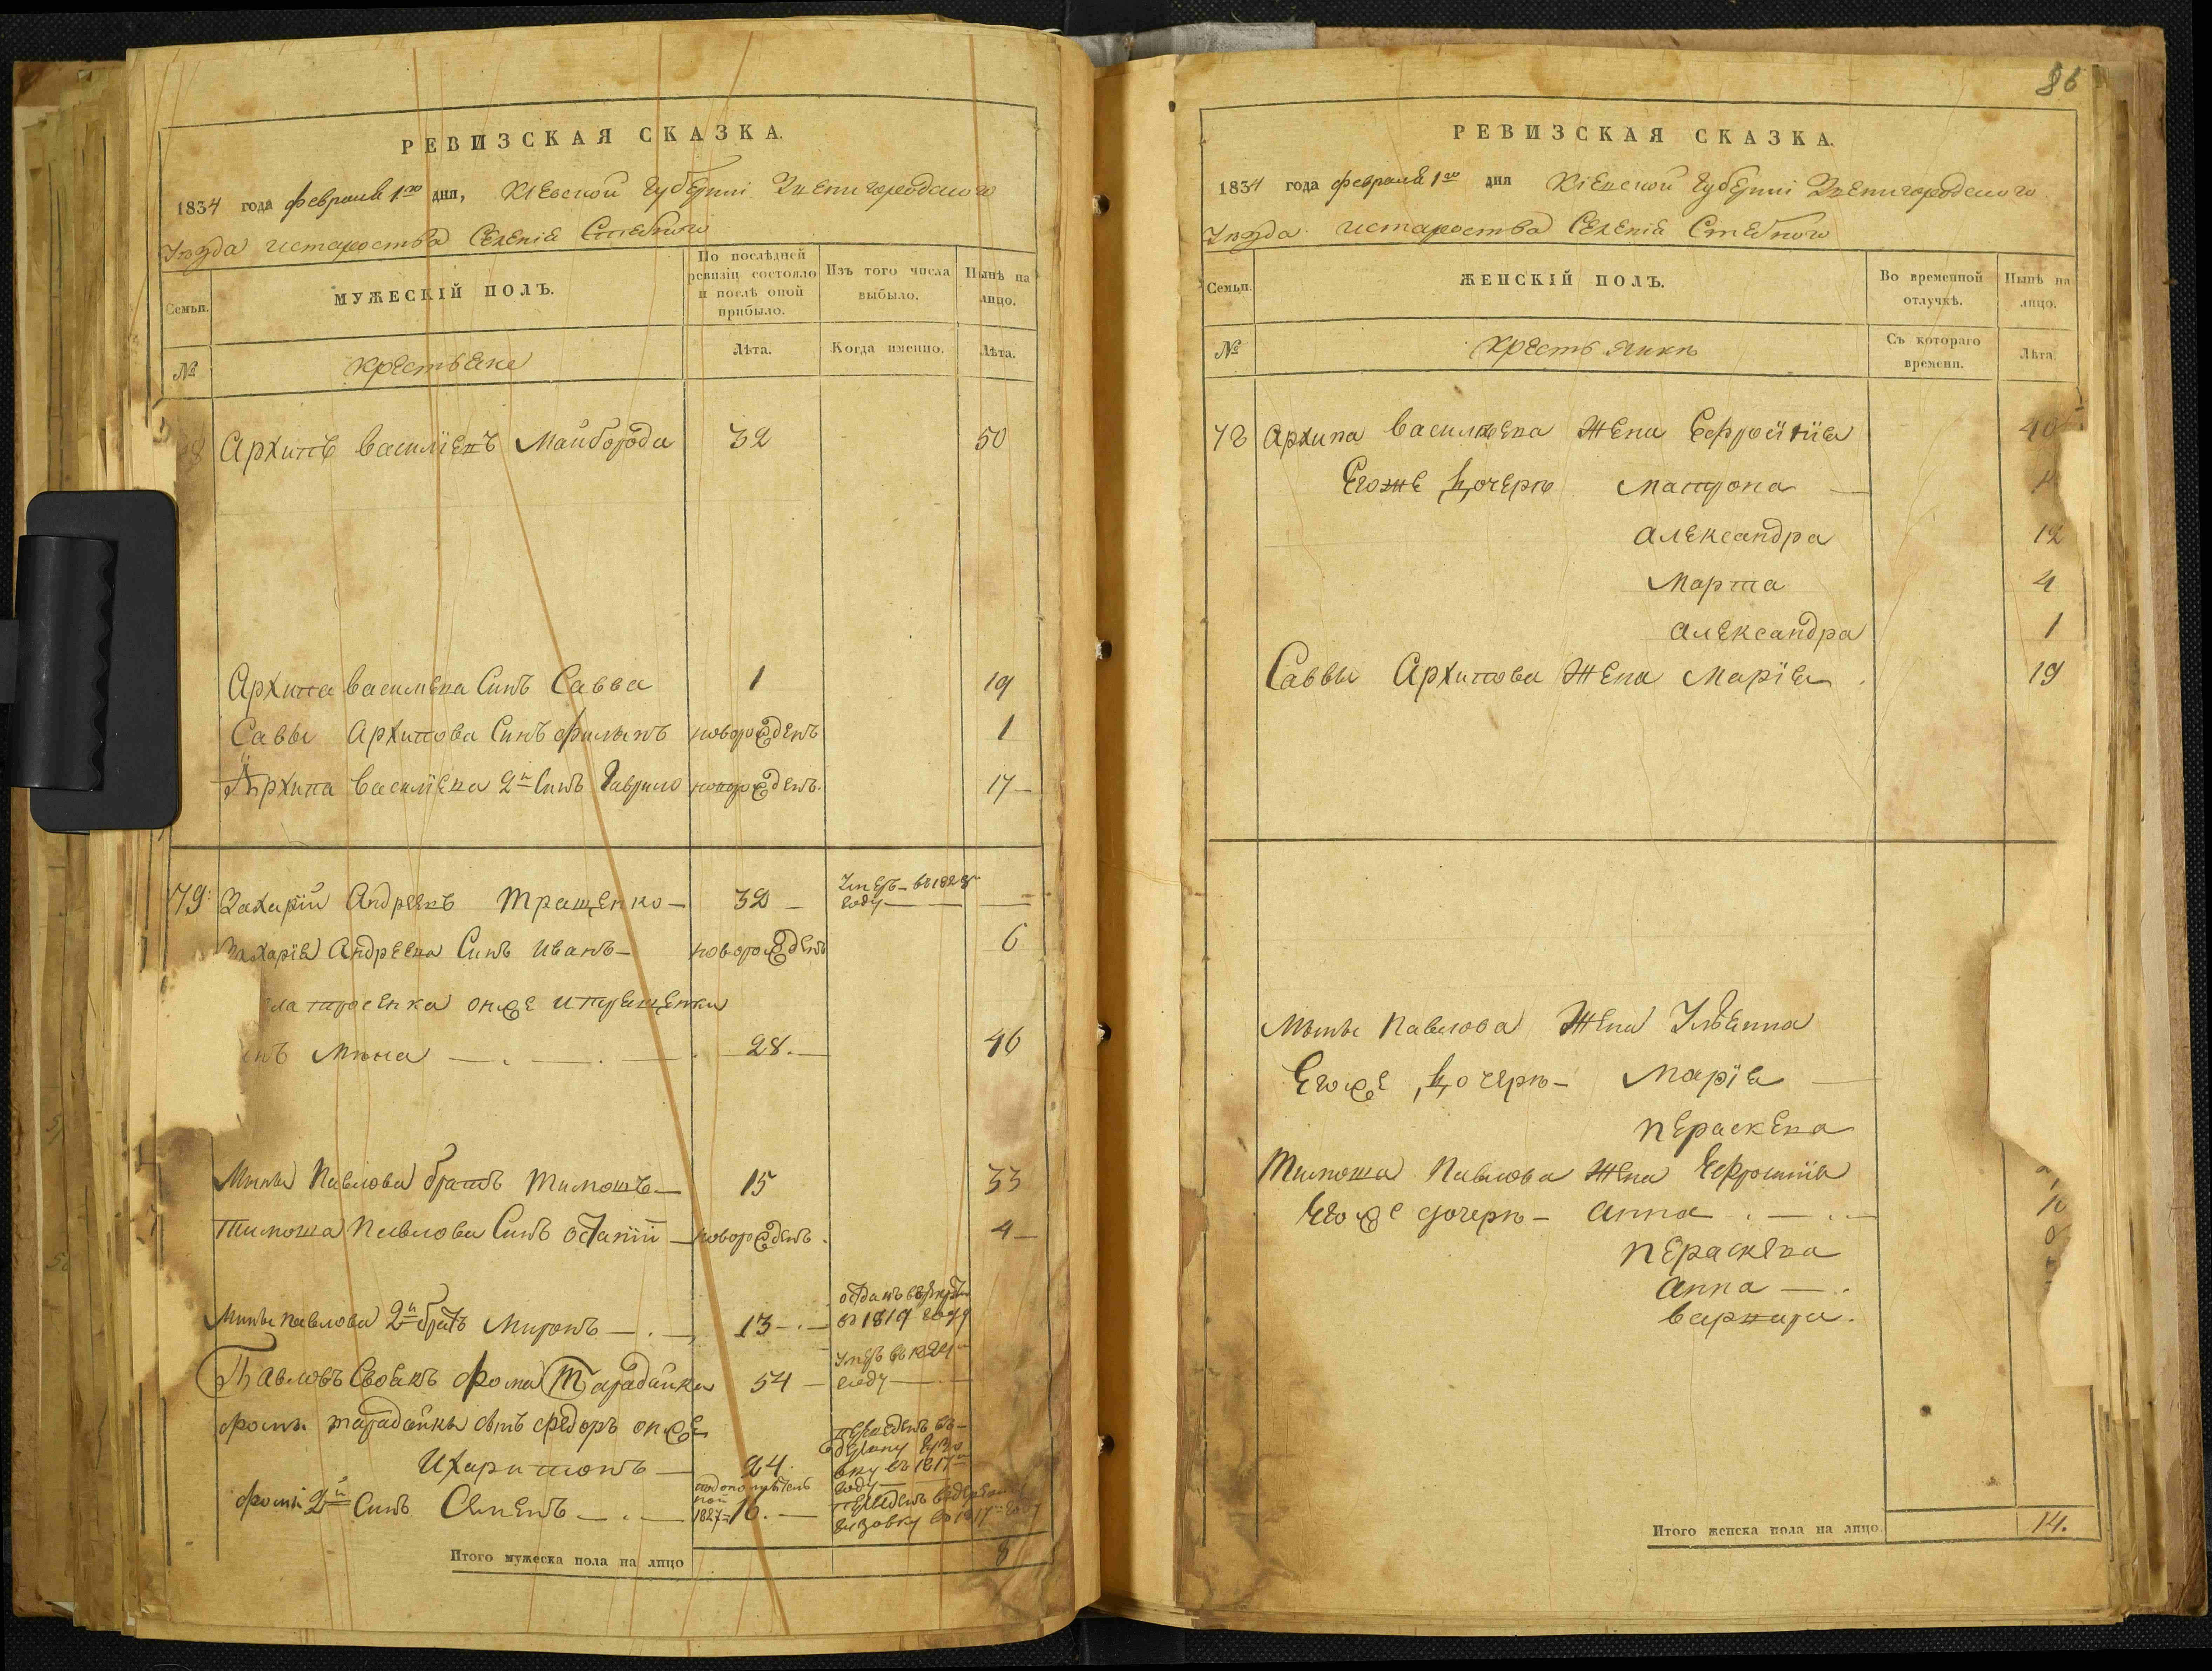 РЕВИЗСКАЯ СКАЗКА.
1834 года февраля 1го дня, Кіевской Губерніи Звенигородского
Уезда Староства Селенія Стебного
Семьи.
МУЖЕСКІЙ ПОЛЪ.
По послѣдней ревизіи состояло и послѣ оной прибыло.
Изъ того числа выбыло.
Нынѣ на лицо.
№
крестьяне
Лѣта.
Когда именно.
Лѣта.
Архипъ Василіевъ Майборода 32 50
Архипа Василіева Синъ Савва 1 19
Саввы Архипова Синъ Филипъ новорожденъ 1
Архипа Василіева 2й Синъ Гаврило новорожденъ. 17
79: Захарій Андреевъ Тращенко 32 Умеръ въ 1828м году
Захарія Андреева Синъ Иванъ новорожденъ 6
онже Итращенка
Мина 28. 46
Мины Павлова братъ Тимошъ 15 33
Тимоша Павлова Синъ Остапій новорожденъ. 4
Мины Павлова 2й братъ Миронъ 13 отданъ в рекруты в 1819 году
Павловъ Своякъ Фома Тарадайка 54 Умеръ въ 1824м году
Фомы Тарадайки Синъ Федоръ онже
Ихаритонъ 24. переведенъ въ деревню въ 1817м году
Фомы 2й Синъ Семенъ 1827 16. переведенъ в деревню в 1817м году
Итого мужеска пола на лицо 8
86
РЕВИЗСКАЯ СКАЗКА.
1834 года февраля 1го дня Кіевской Губерніи Звенигородского
Уезда Староства Селенія Стебного
Семьи.
ЖЕНСКІЙ ПОЛЪ.
Во временной отлучкѣ.
Нынѣ на лицо.
№
крестьянки
Съ котораго времени.
Лѣта.
78 Архипа Василіева Жена Ефросинія 40
Егоже Дочери Матрона
Александра 12
Марта 4
Александра 1
Саввы Архипова Жена Марія 19
Мины Павлова Жена Уліянна
Егоже Дочери Марія
Пераскева
Тимоша Павлова Жена Ефросинія
Егоже дочери Анна
Пераскева
Анна
Варвара.
Итого женска пола на лицо 14.